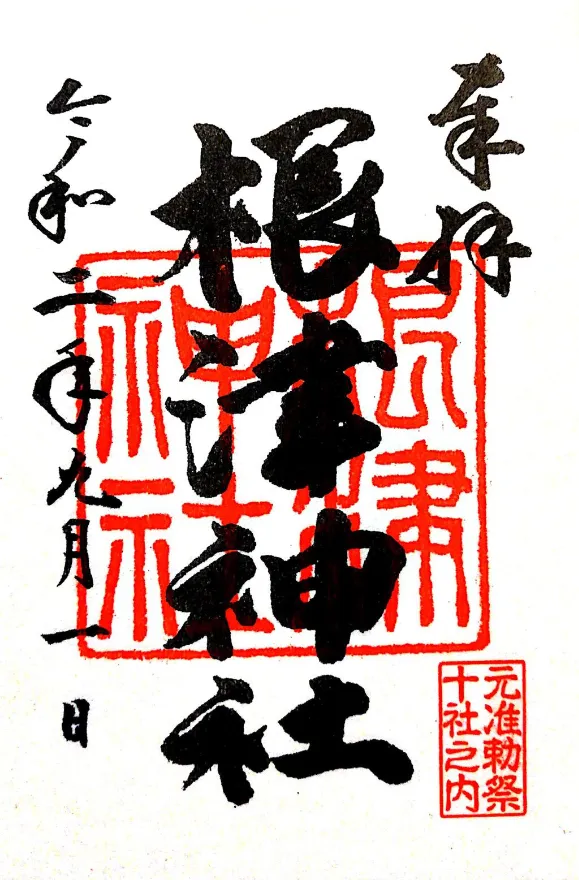 奉拝
根津神社
根津
神社
元准勅祭
十社之内
令和二年九月一日